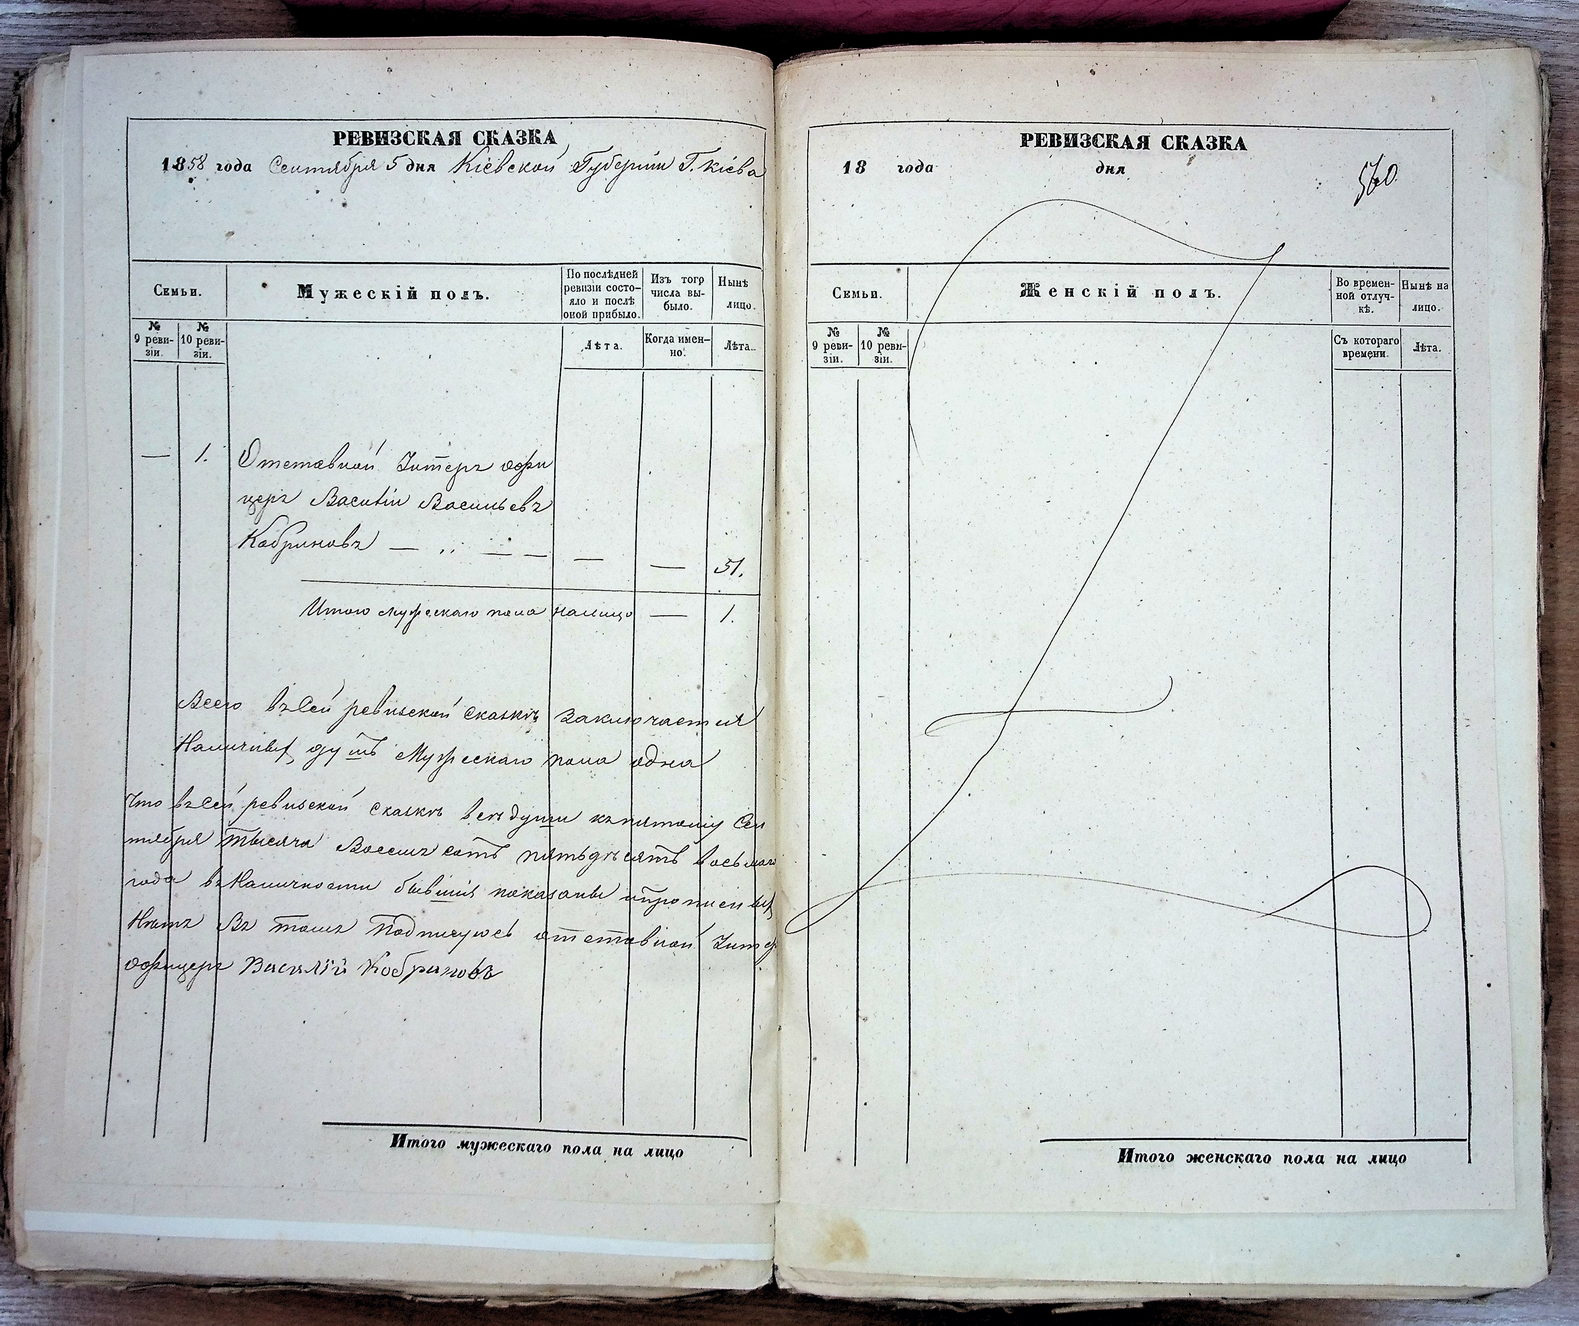 РЕВИЗСКАЯ СКАЗКА
1858 года Сентября 5 дня Кіевской Губерніи Г. Кіева
Семьи.
Мужескій полъ.
По послѣдней
ревизіи состо-
яло и послѣ
оной прибыло.
Изъ того
числа вы-
было.
Нынѣ
лицо.
№
9 реви-
зіи.
№
10 реви-
зіи.
Лѣта.
Когда имен-
но.
Лѣта.
— 1. Отставной Унтеръ офи
церъ Василій Васильевъ
Кобриновъ — „ — — — — 51.
Итого мужескаго пола налицо — 1.
Всего въ Сей ревизской сказкѣ заключается
Наличныхъ душъ Мужескаго пола одна
Что въ Сей ревизской сказкѣ всѣ души къ пятому Сен
тября тысяча Восемь сотъ пятьдесятъ восьмаго
года въ Наличности бывшія показаны и прописныхъ
Нѣтъ Въ томъ Подписуюсь отставной Унтер
офицеръ Василій Кобриновъ
Итого мужескаго пола на лицо
РЕВИЗСКАЯ СКАЗКА
18 года дня
560
Семьи.
Женскій полъ.
Во времен-
ной отлуч-
кѣ.
Нынѣ на
лицо.
№
9 реви-
зіи.
№
10 реви-
зіи.
Съ котораго
времени.
Лѣта.
Итого женскаго пола на лицо